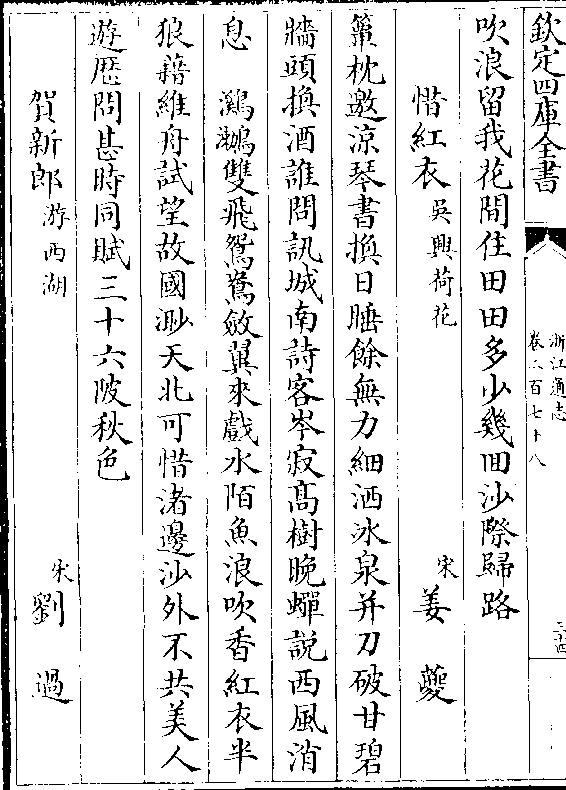 欽定四庫全書
浙江通志
卷二百七十八
三十四
吹浪留我花間住田田多少幾回沙際歸路
惜紅衣 吳興荷花 宋 姜夔
簟枕邀涼琴書換日睡餘無力細洒冰泉并刀破甘碧
牆頭換酒誰問訊城南詩客岑寂髙樹晚蟬説西風消
息 鸂鶒雙飛鴛鴦斂翼來戲水陌魚浪吹香紅衣半
狼藉維舟試望故國渺天北可惜渚邊沙外不共美人
遊歴問甚時同賦三十六陂秋色
賀新郎 游西湖 宋 劉過